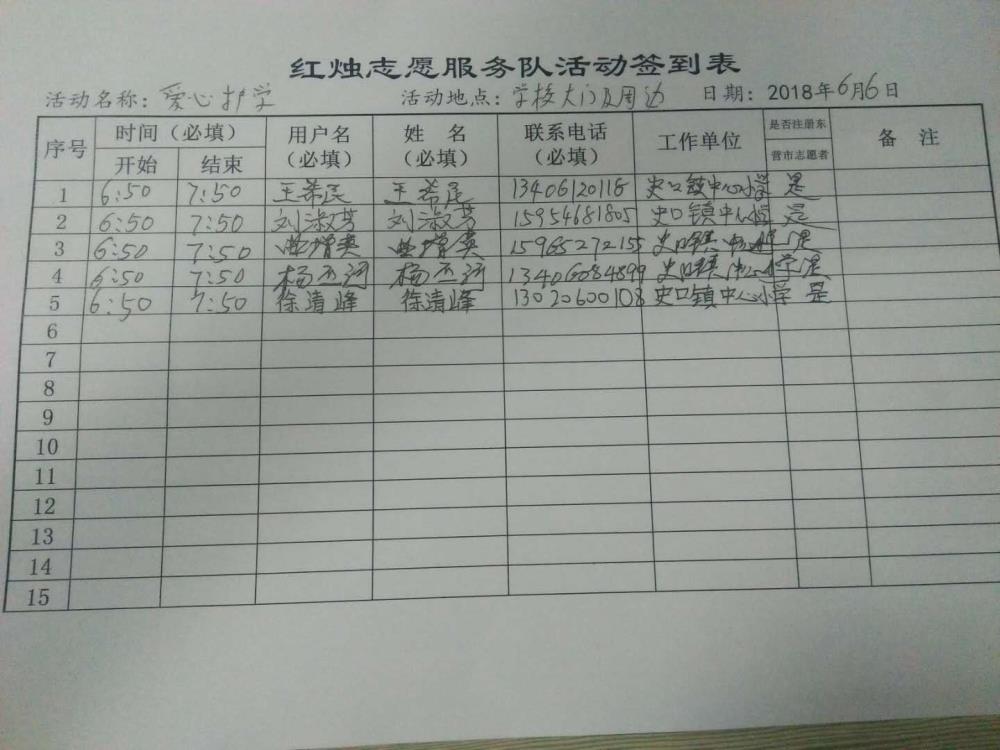 红烛志愿服务队活动签到表
活动名称：爱心护学 活动地点：学校大门及周边 日期：2018年6月6日
序号 时间（必填） 用户名（必填） 姓 名（必填） 联系电话（必填） 工作单位 是否注册东营市志愿者 备 注
开始 结束
1 6:50 7:50 王希民 王希民 13406120118 史口镇中心小学 是
2 6:50 7:50 刘淑芳 刘淑芳 15954681805 史口镇中心小学 是
3 6:50 7:50 曲增英 曲增英 15965272155 史口镇中心小学 是
4 6:50 7:50 杨 杨 13406084899 史口镇中心小学 是
5 6:50 7:50 徐清峰 徐清峰 13020600108 史口镇中心小学 是
6
7
8
9
10
11
12
13
14
15